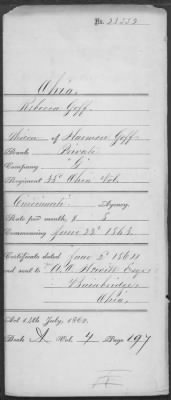 No. 21552
Ohio.
Rebecca Goff
Widow of Harmon Goff
Rank Private
Company "G"
Regiment 33d Ohio Vol.
Cincinnati Agency.
Rate per month, $ 8
Commencing June 22d 1863.
Certificate dated June 2d 1864
and sent to
Bainbridge
Ohio,
Act 14th July, 1862.
Book A Vol. 4 Page 197